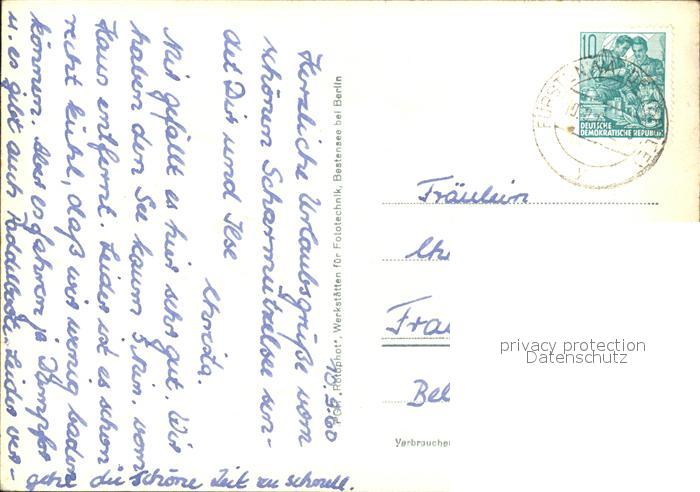 10.9.60
Herzliche Urlaubsgrüße vom
schönen Scharmützelsee sen-
det Dir und Ilse
Christa.
Mir gefällt es hier sehr gut. Wir
haben den See kaum 5 Min. vom
Haus entfernt. Leider ist es schon
recht kühl, daß wir wenig baden
können. Aber es fahren ja Dampfer
u. es gibt auch Paddelboote. Leider ver-
geht die schöne Zeit zu schnell.
PGH „Rotophot", Werkstätten für Fototechnik, Bestensee bei Berlin
10
DEUTSCHE
DEMOKRATISCHE REPUBLIK
FÜRSTENWALDE
Fräulein
Bel
Verbraucher
privacy protection
Datenschutz